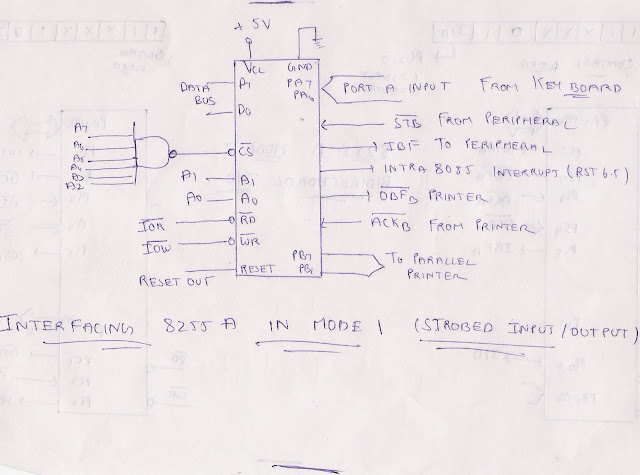 + 5V
VCC GND
DATA BUS
D7
D0
PA7
PA0
PORT A INPUT FROM KEY BOARD
A7
A6
A5
A4
A3
A2
CS
STB FROM PERIPHERAL
IBF TO PERIPHERAL
INTRA 8085 INTERRUPT (RST 6.5)
A1 A1
A0 A0
OBFB PRINTER
IOR RD
ACKB FROM PRINTER
IOW WR
RESET OUT RESET
PB7
PB1
TO PARALLEL
PRINTER
INTERFACING 8255 A IN MODE 1 (STROBED INPUT/OUTPUT)